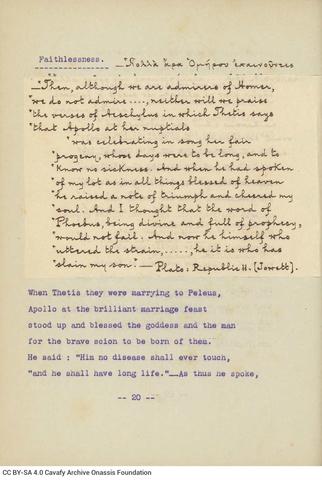 Faithlessness. —"Πολλὰ ἄρα Ὁμήρου ἐπαινοῦντες
—Then, although we are admirers of Homer,
"we do not admire ...., neither will we praise
"the verses of Aeschylus in which Thetis says
"that Apollo at her nuptials
"was celebrating in song her fair
"progeny, whose days were to be long, and to
"know no sickness. And when he had spoken
"of my lot as in all things blessed of heaven
"he raised a note of triumph and cheered my
"soul. And I thought that the word of
"Phoebus, being divine and full of prophecy,
"would not fail. And now he himself who
"uttered the strain, ....., he it is who has
"slain my son."— Plato: Republic II. (Jowett).
When Thetis they were marrying to Peleus,
Apollo at the brilliant marriage feast
stood up and blessed the goddess and the man
for the brave scion to be born of them.
He said : "Him no disease shall ever touch,
"and he shall have long life."—As thus he spoke,
-- 20 --
CC BY-SA 4.0 Cavafy Archive Onassis Foundation